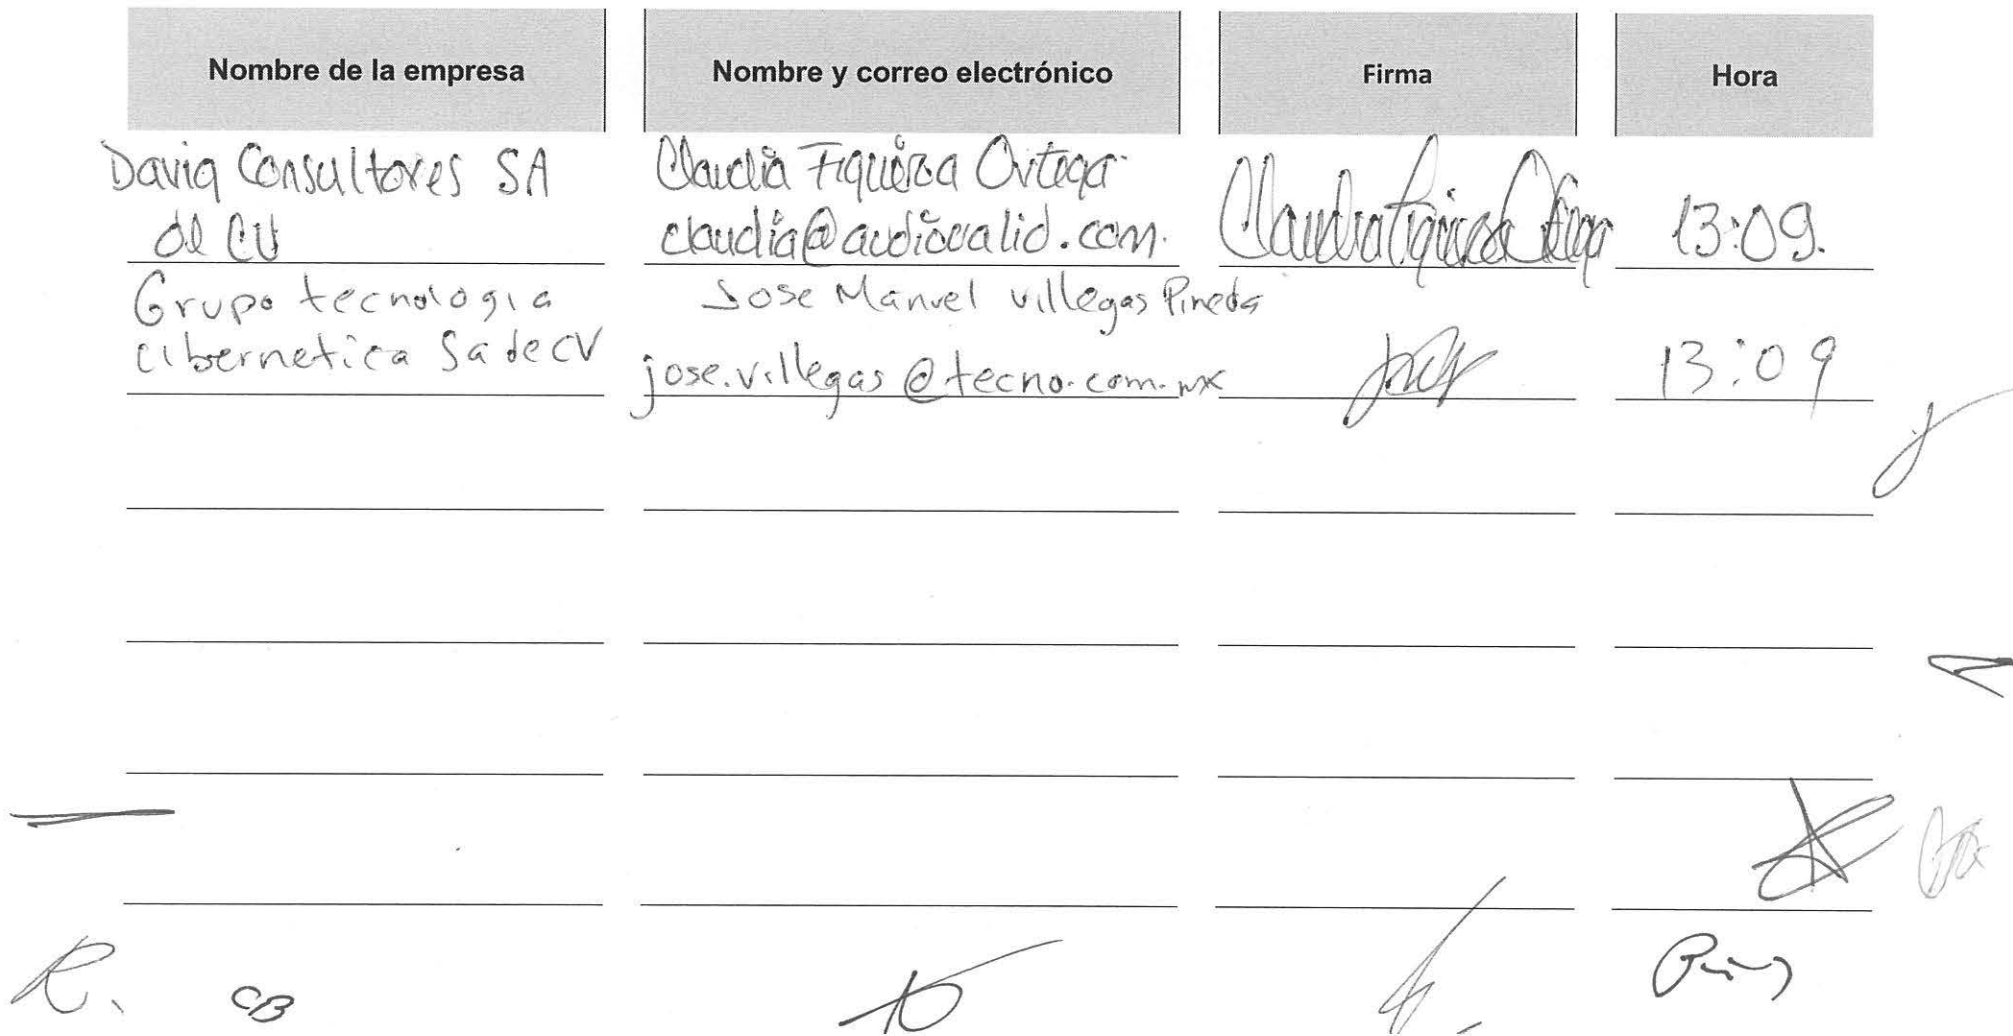 Nombre de la empresa
Nombre y correo electrónico
Firma
Hora
Daviq Consultores SA
de CV
Claudia Figueroa Ortega
claudia@audiovalid.com.
Claudia Figueroa Ortega
13:09.
Grupo tecnologia
cibernetica Sa de CV
Jose Manuel villegas Pineda
jose.villegas@tecno.com.mx
13:09
R.
CB